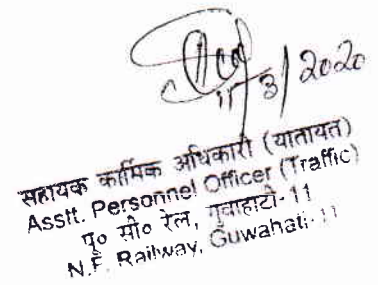 11/3/2020
सहायक कार्मिक अधिकारी (यातायत)
Asstt. Personnel Officer (Traffic)
पू० सी० रेल, गुवाहाटी-11
N.F. Railway, Guwahati-11